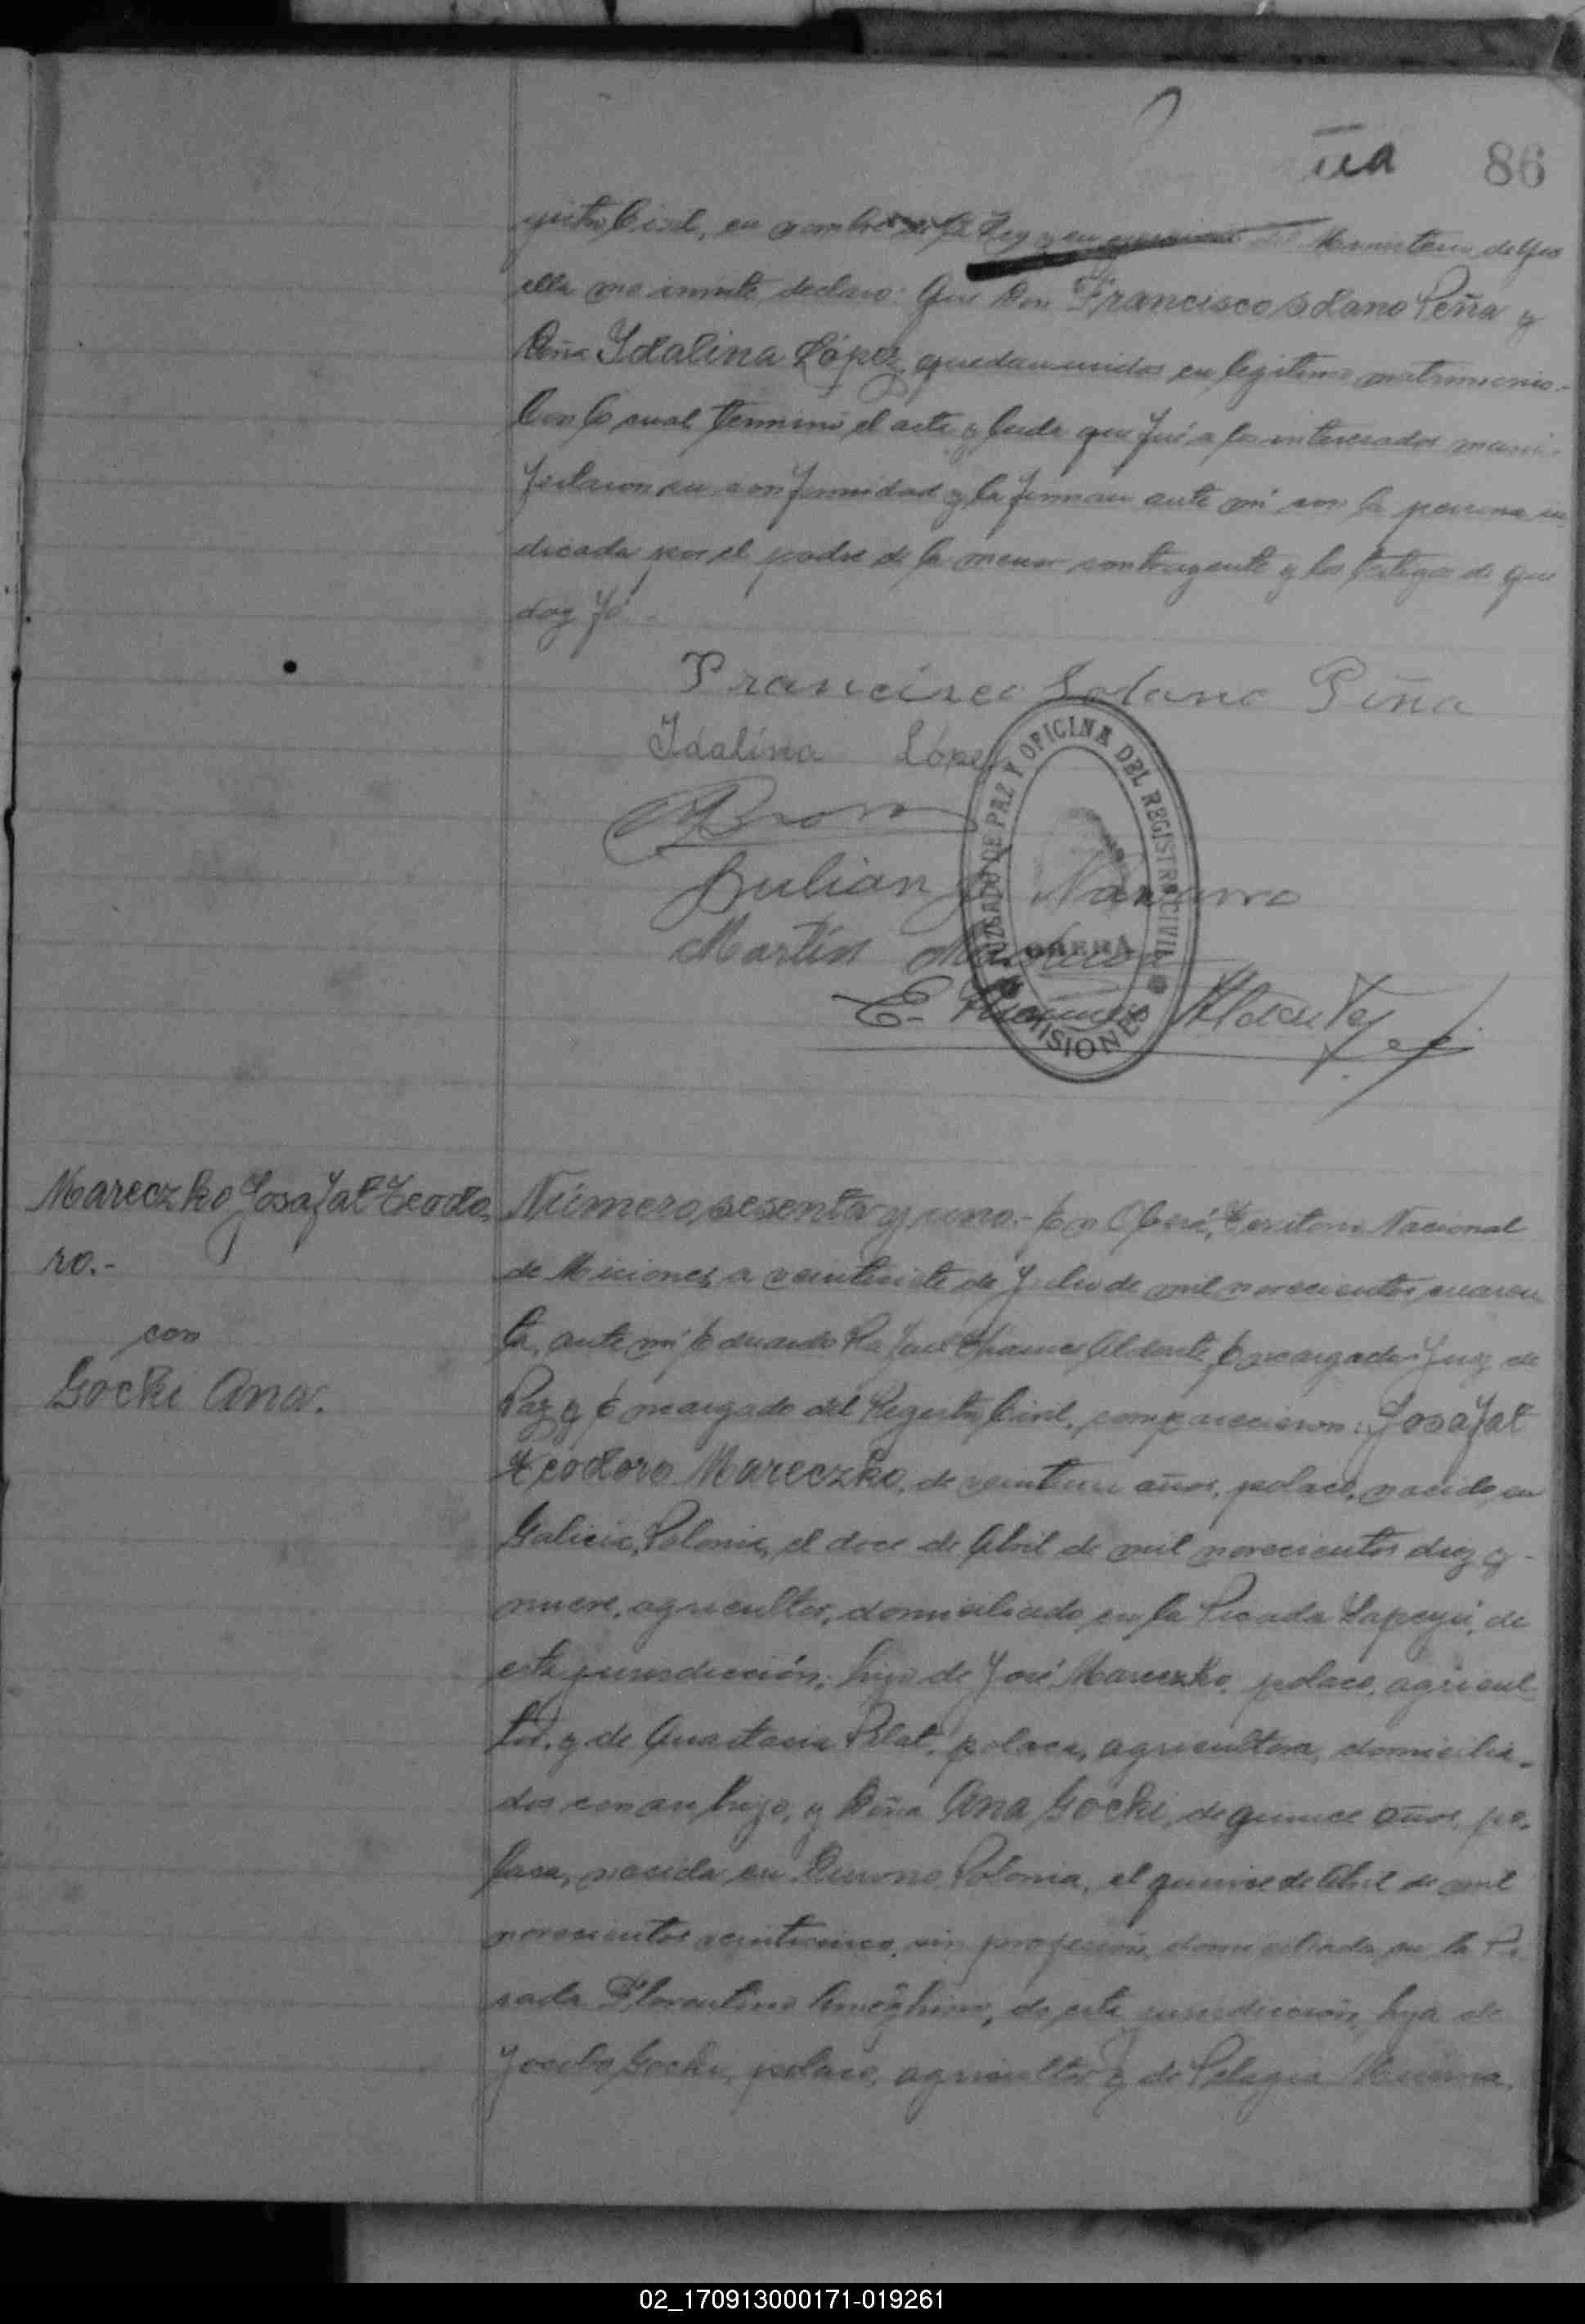 86
gistro Civil, en nombre de la Ley y en ejercicio del Ministerio de que
ella me inviste declaro: Que Don Francisco Solano Peña y
Doña Idalina López, quedan unidos en legítimo matrimonio.-
Con lo cual terminó el acta y leida que fué a los interesados mani-
festaron su conformidad y la firman ante mí con la persona in-
dicada por el padre de la menor contrayente y los testigos de que
doy fé.-
Francisco Solano Piña
Idalina López
Julian Navarro
Martín
E. Aldante
JUZGADO DE PAZ Y OFICINA DEL REGISTRO CIVIL
OBERÁ
MISIONES
Mareczko Josafat Teodo-
ro.-
con
Gocki Ana.
Número sesenta y uno.- En Oberá, Territorio Nacional
de Misiones, a veintisiete de Julio de mil novecientos cuaren
ta, ante mí Eduardo Rafael Aldante Encargado Juez de
Paz y Encargado del Registro Civil, comparecieron: Josafat
Teodoro Mareczko, de veintiun años, polaco, nacido en
Galicia, Polonia, el doce de Abril de mil novecientos diez y-
nueve, agricultor, domiciliado en la Picada Yapeyú, de
esta jurisdicción, hijo de José Mareczko, polaco, agricul-
tor, y de Anastacia Pilat, polaca, agricultora, domicilia-
dos con su hijo, y Doña Ana Gocki, de quince años, po-
laca, nacida en Polonia, el quince de Abril de mil
novecientos veinticinco, sin profesión, domiciliada en la Pi-
cada Florentino Ameghino, de esta jurisdicción, hija de
Jacobo Gocki, polaco, agricultor y de Pelagia
02_170913000171-019261